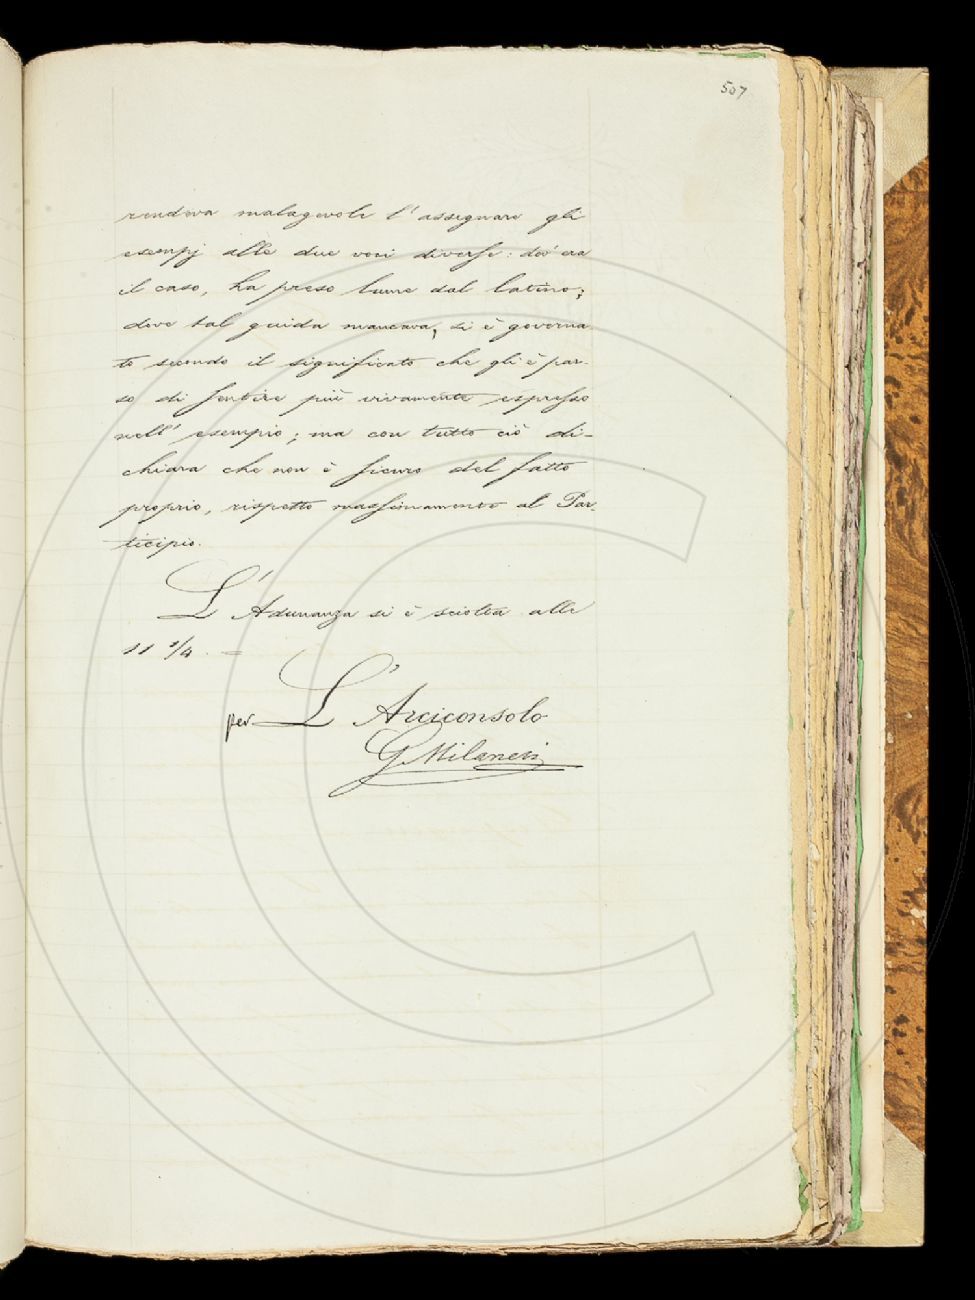 507
rendeva malagevole l'assegnare gli
esempj alle due voci diverse: dov'era
il caso, ha preso lume dal latino;
dove tal guida mancava, si è governa
to secondo il significato che gli è par-
so di sentire più vivamente espresso
nell'esempio; ma con tutto ciò di-
chiara che non è sicuro del fatto
proprio, rispetto massimamente al Par
ticipio.
L'Adunanza si è sciolta alle
11 1/4. =
per L'Arciconsolo
G Milanesi